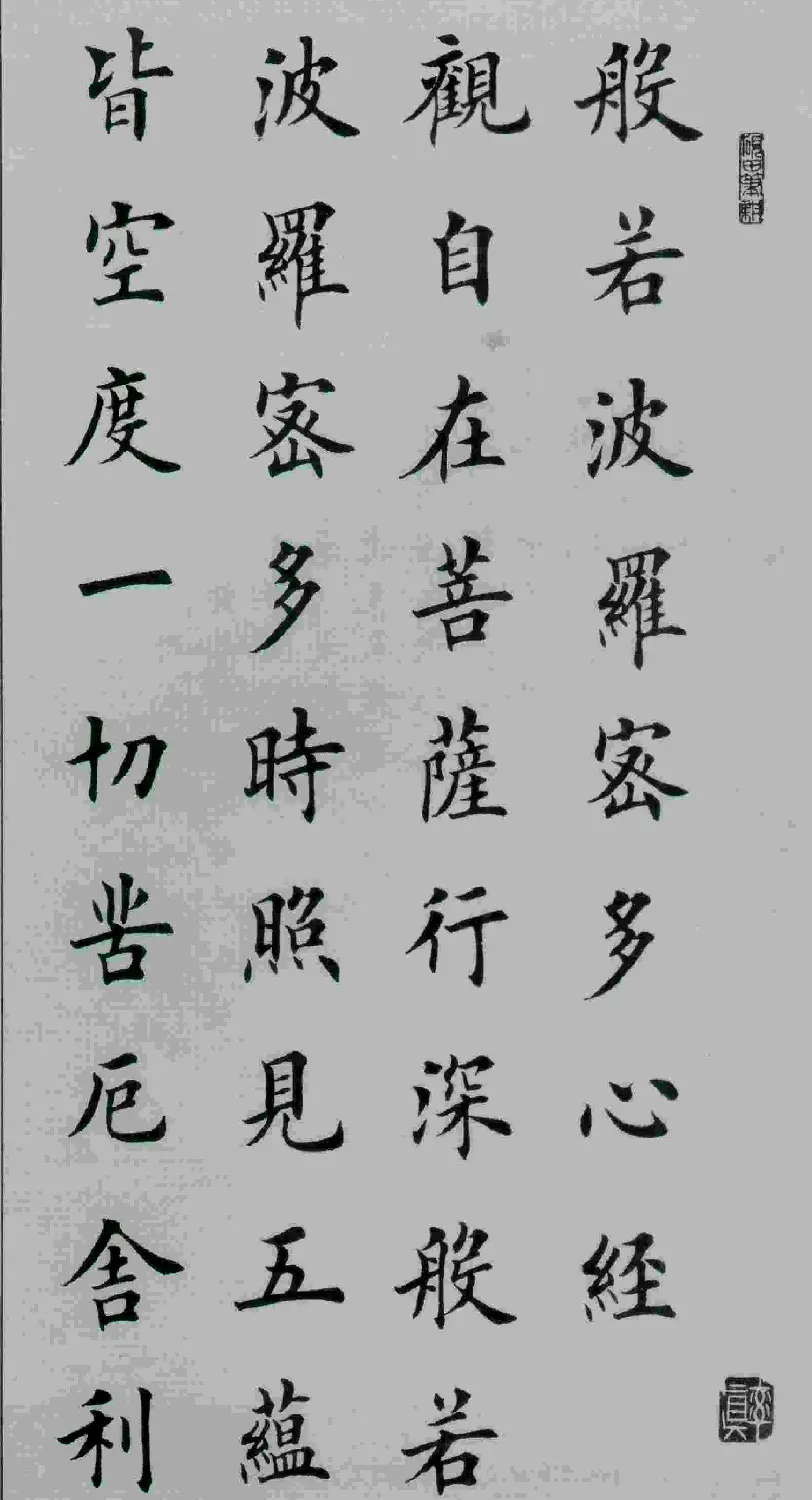 般若波羅蜜多心經
觀自在菩薩行深般若
波羅蜜多時照見五蘊
皆空度一切苦厄舍利
率真